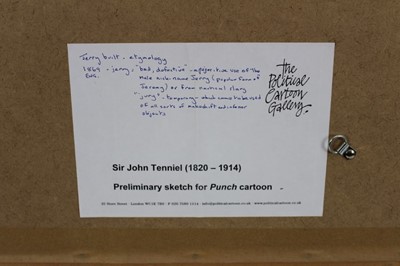 Jerry built - etymology
1869 - jerry - "bad, defective" - a pejorative use of the
male nick-name Jerry (popular form of
Jeremy) or from nautical slang
"jury" - temporary - which came to be used
of all sorts of makeshift and inferior
objects
the
Political
Cartoon
Gallery
Sir John Tenniel (1820 – 1914)
Preliminary sketch for Punch cartoon